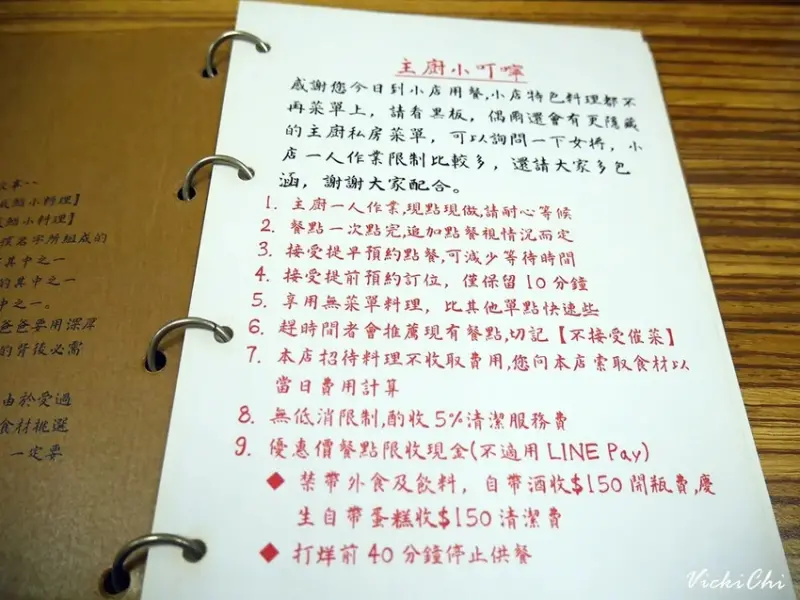 主廚小叮嚀
感謝您今日到小店用餐,小店特色料理都不
再菜單上，請看黑板，偶爾還會有更隱藏
的主廚私房菜單，可以詢問一下女將，小
店一人作業限制比較多，還請大家多包
涵，謝謝大家配合。
1. 主廚一人作業,現點現做,請耐心等候
2. 餐點一次點完,追加點餐視情況而定
3. 接受提早預約點餐,可減少等待時間
4. 接受提前預約訂位，僅保留10分鐘
5. 享用無菜單料理，比其他單點快速些
6. 趕時間者會推薦現有餐點,切記【不接受催菜】
7. 本店招待料理不收取費用,您向本店索取食材以
當日費用計算
8. 無低消限制,酌收5%清潔服務費
9. 優惠價餐點限收現金(不適用LINE Pay)
◆ 禁帶外食及飲料，自帶酒收$150開瓶費,慶
生自帶蛋糕收$150清潔費
◆ 打烊前40分鐘停止供餐
小料理】
小料理】
名字所組成的
其中之一
的其中之一
中之一。
爸爸要用深厚
的背後必需
由於愛過
食材挑選
一定要
VickiChi